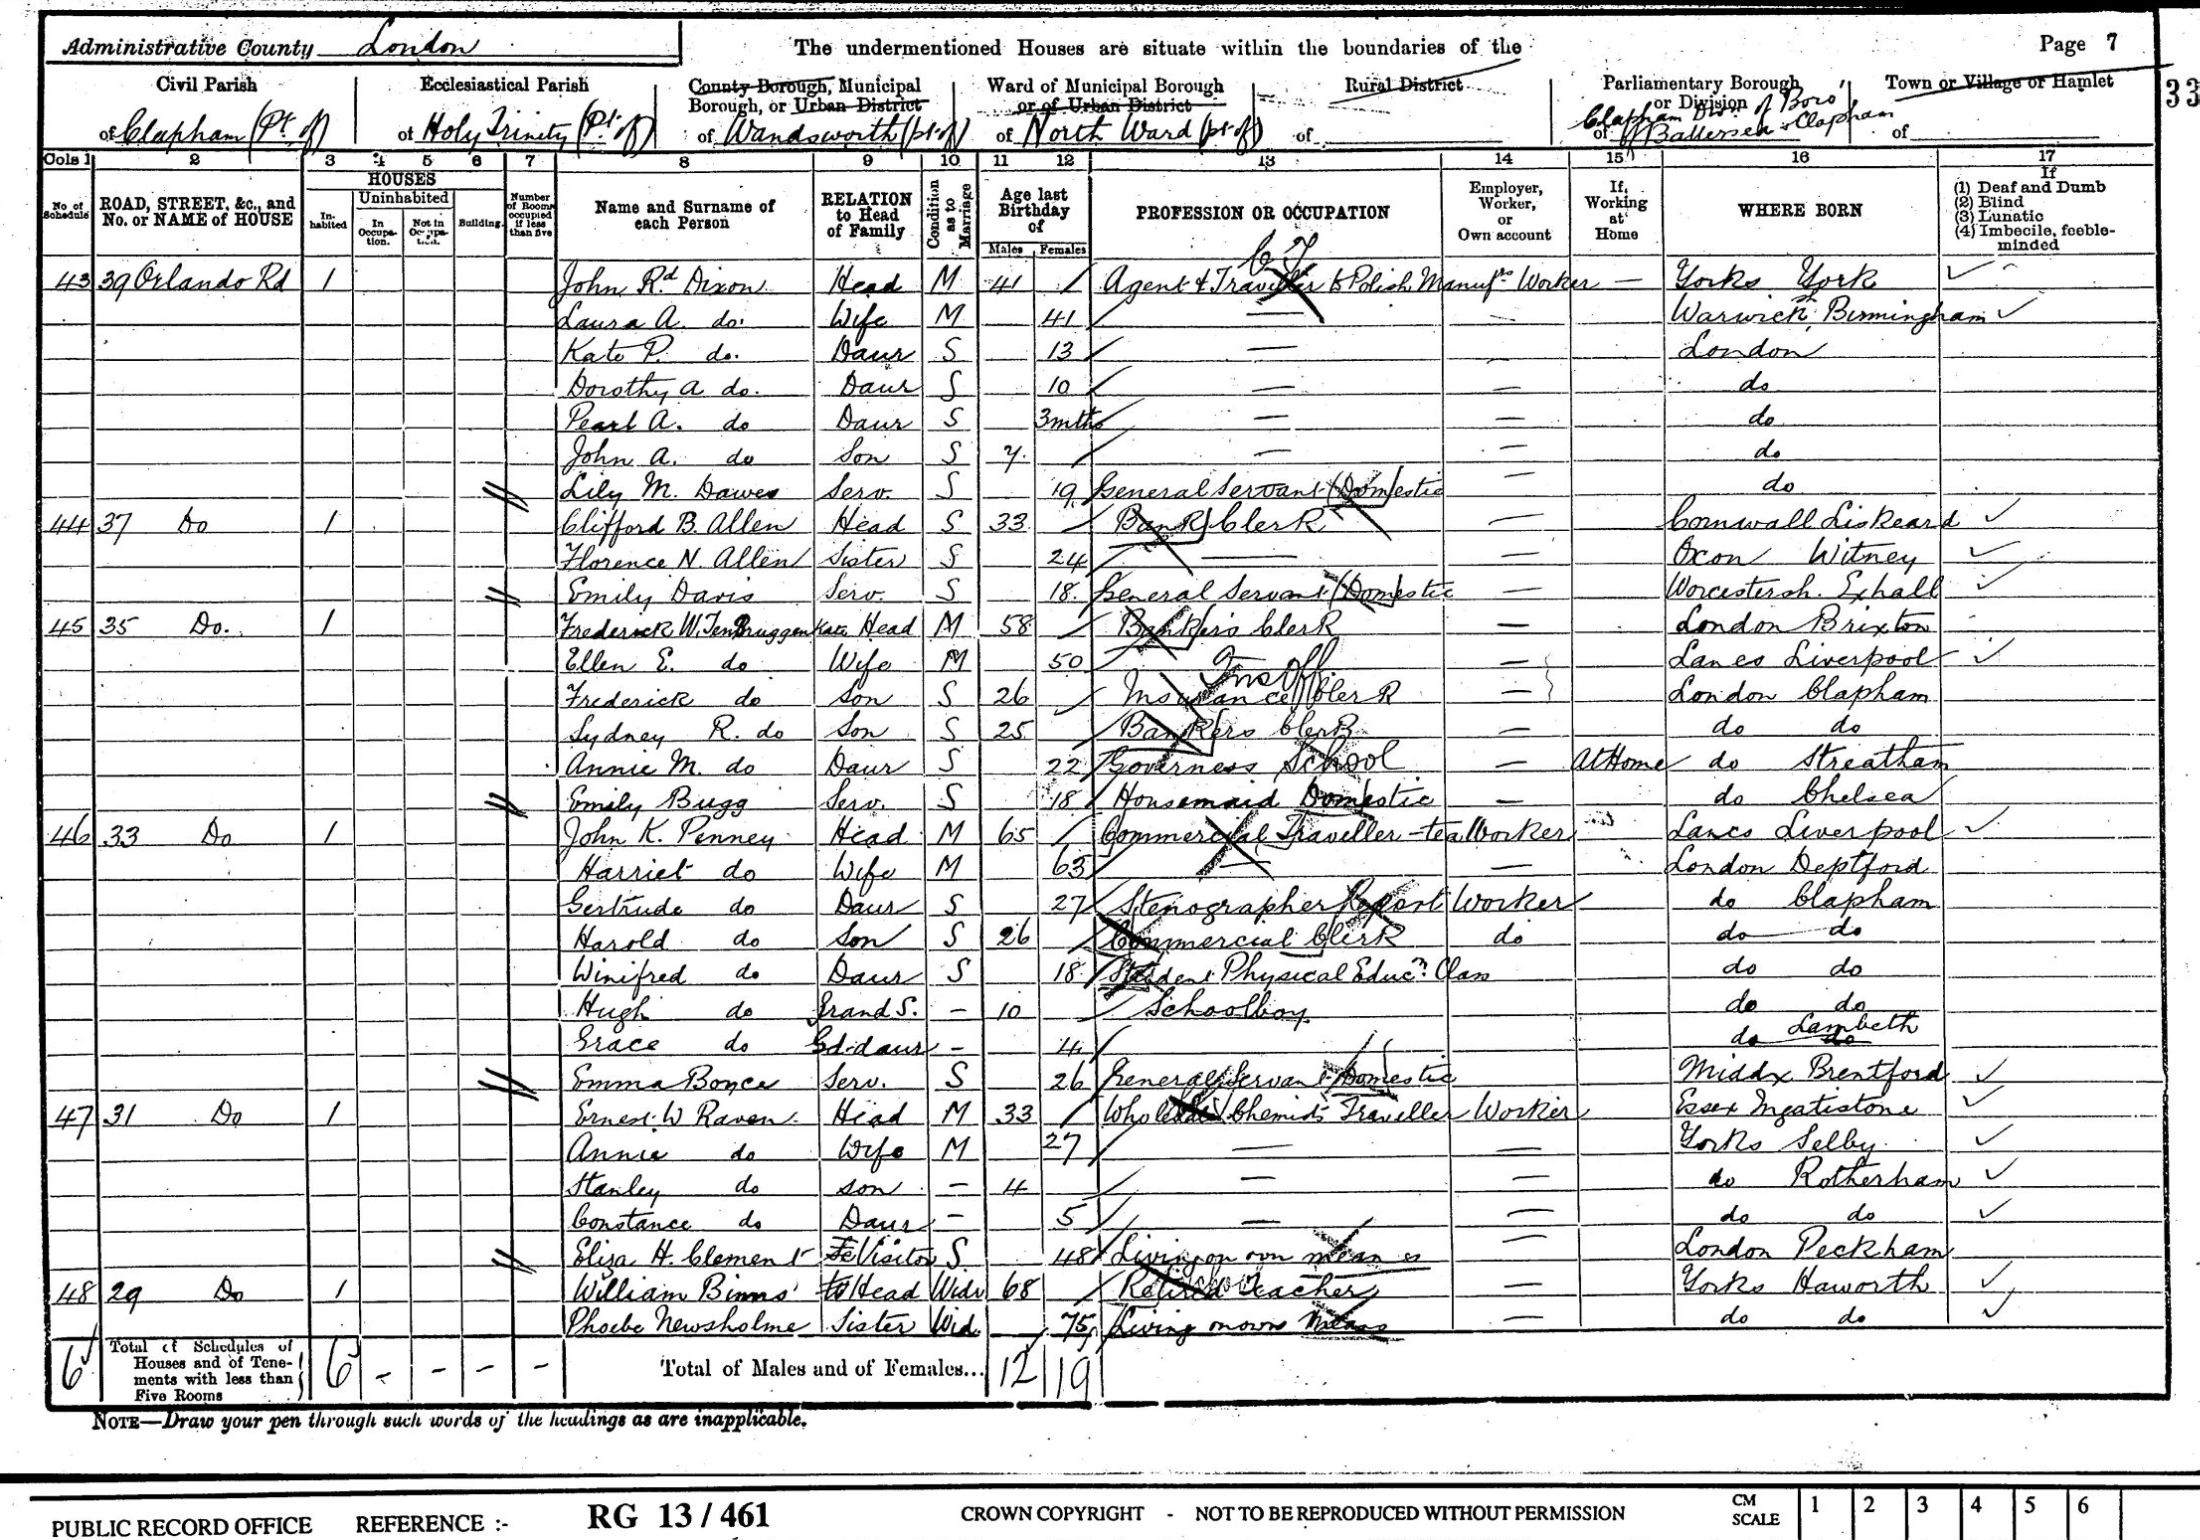 Administrative County London
The undermentioned Houses are situate within the boundaries of the
Page 7
33
Civil Parish of Clapham (Pt. of)
Ecclesiastical Parish of Holy Trinity (Pt. of)
County Borough, Municipal Borough, or Urban District of Wandsworth (pt of)
Ward of Municipal Borough or of Urban District of North Ward (pt of)
Rural District of
Parliamentary Borough or Division of Clapham Divn. of Boro' of Battersea & Clapham
Town or Village or Hamlet of
Cols 1 2 3 4 5 6 7 8 9 10 11 12 13 14 15 16 17
No. of Schedule
ROAD, STREET, &c., and No. or NAME of HOUSE
HOUSES
Inhabited
Uninhabited
In Occupation.
Not in Occupation.
Building.
Number of Rooms occupied if less than five
Name and Surname of each Person
RELATION to Head of Family
Condition as to Marriage
Age last Birthday of
Males Females
PROFESSION OR OCCUPATION
Employer, Worker, or Own account
If Working at Home
WHERE BORN
If (1) Deaf and Dumb (2) Blind (3) Lunatic (4) Imbecile, feeble-minded
43 39 Orlando Rd 1 John Rd. Dixon Head M 41 Agent & Traveller to Polish Manufrs Worker — Yorks York
Laura A. do. Wife M 41 — — Warwicksh Birmingham
Kate P. do. Daur S 13 — — London
Dorothy A do. Daur S 10 — — do
Pearl A. do Daur S 3mths — — do
John A. do Son S 7 — — do
Lily M. Dawes Serv. S 19 General Servant (Domestic — do
44 37 Do 1 Clifford B. Allen Head S 33 Bank Clerk — Cornwall Liskeard
Florence N. Allen Sister S 24 — — Oxon Witney
Emily Davis Serv. S 18 General Servant (Domestic — Worcestersh. Exhall
45 35 Do. 1 Frederick W. TenBruggenKate Head M 58 Bankers Clerk — London Brixton
Ellen E. do Wife M 50 — Lancs Liverpool
Ins Off
Frederick do Son S 26 Insurance Clerk — London Clapham
Sydney R. do Son S 25 Bankers Clerk — do do
Annie M. do Daur S 22 Governess School — At Home do Streatham
Emily Bugg Serv. S 18 Housemaid Domestic — do Chelsea
46 33 Do 1 John K. Penney Head M 65 Commercial Traveller - tea Worker Lancs Liverpool
Harriet do Wife M 63 — — London Deptford
Gertrude do Daur S 27 Stenographer Report Worker do Clapham
Harold do Son S 26 Commercial Clerk do do do
Winifred do Daur S 18 Student Physical Educn. Class do do
Hugh do Grand S. — 10 Schoolboy do do
Grace do Gd-daur — 4 do Lambeth do
Emma Boyce Serv. S 26 General Servant (Domestic Middx Brentford
47 31 Do 1 Ernest W Raven Head M 33 Wholesale Chemists Traveller Worker Essex Ingatestone
Annie do Wife M 27 — — Yorks Selby
Stanley do Son — 4 — — do Rotherham
Constance do Daur — 5 — — do do
Eliza H. Clement Visitor S. 48 Living on own means London Peckham
48 29 Do 1 William Binns Head Widr 68 Retired Teacher — Yorks Haworth
Phoebe Newsholme Sister Wid. 75 Living on own Means — do do
6 Total of Schedules of Houses and of Tenements with less than Five Rooms 6 - - - - Total of Males and of Females... 12 19
NOTE—Draw your pen through such words of the headings as are inapplicable.
PUBLIC RECORD OFFICE REFERENCE :- RG 13 / 461 CROWN COPYRIGHT - NOT TO BE REPRODUCED WITHOUT PERMISSION CM SCALE 1 2 3 4 5 6